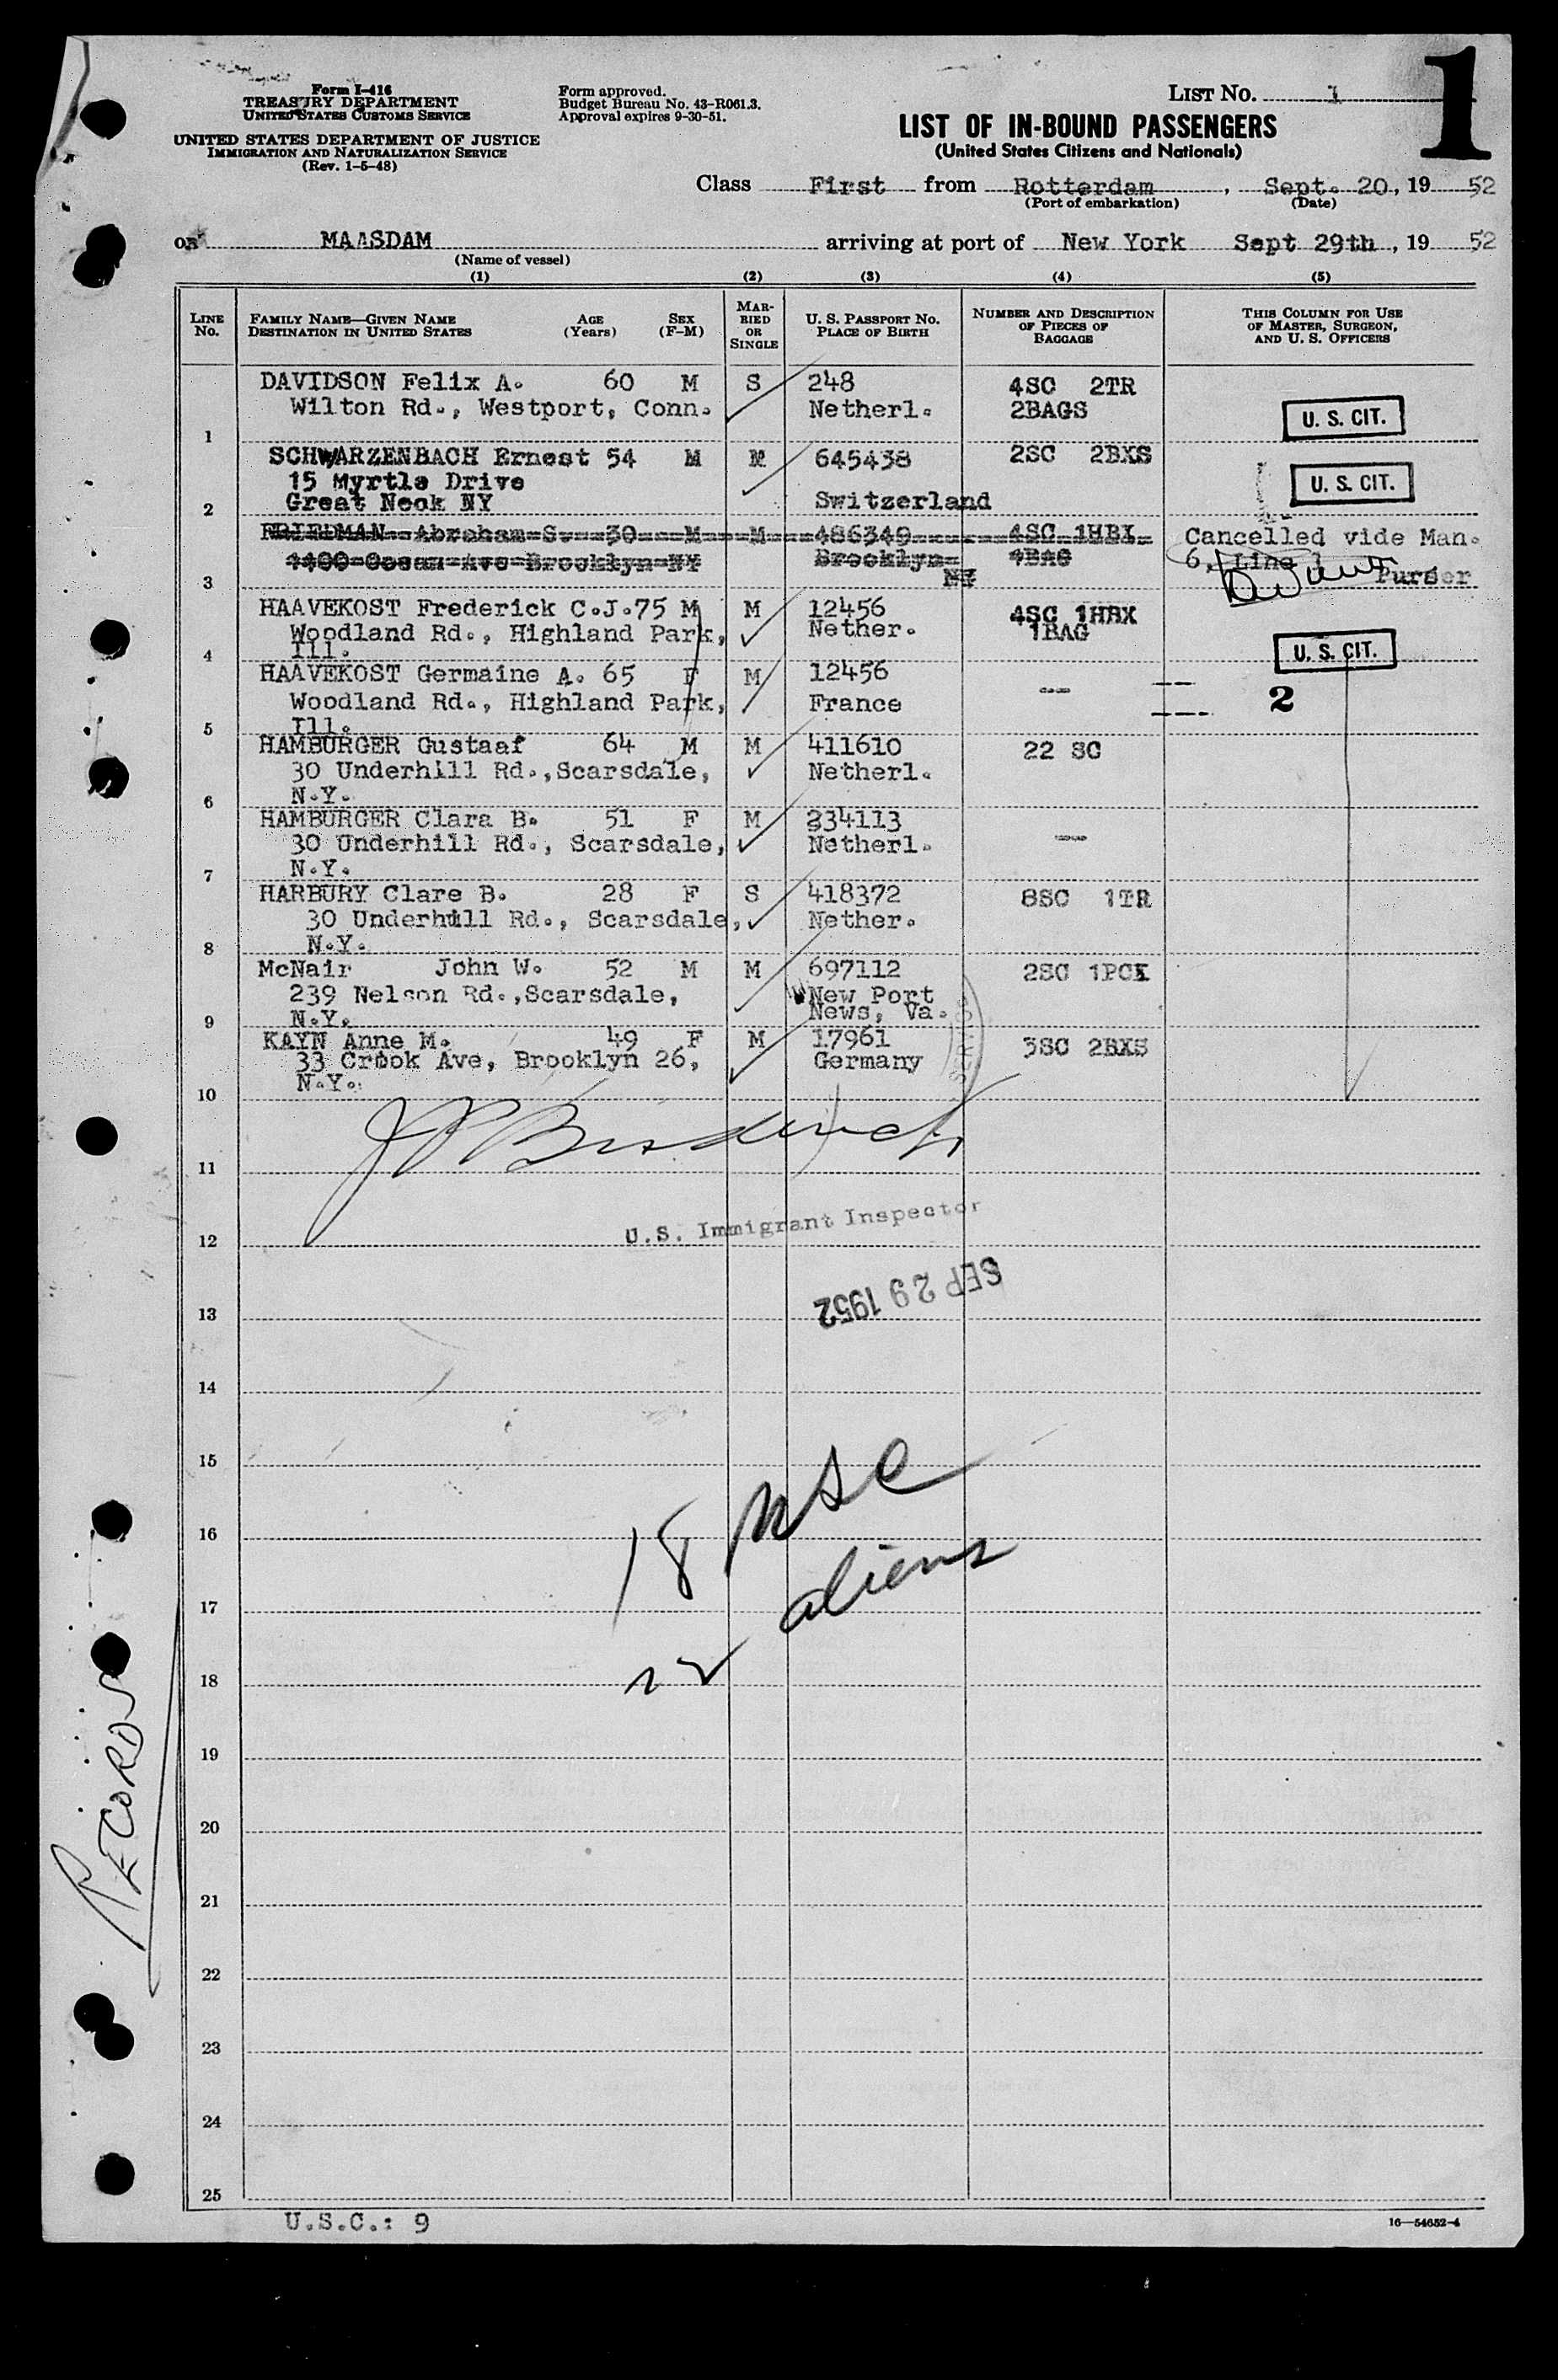 1
Form I-416
TREASURY DEPARTMENT
UNITED STATES CUSTOMS SERVICE
UNITED STATES DEPARTMENT OF JUSTICE
IMMIGRATION AND NATURALIZATION SERVICE
(Rev. 1-5-48)
Form approved.
Budget Bureau No. 43-R061.3.
Approval expires 9-30-51.
LIST No. 1
LIST OF IN-BOUND PASSENGERS
(United States Citizens and Nationals)
Class First from Rotterdam, Sept. 20, 19 52
(Port of embarkation) (Date)
on MAASDAM arriving at port of New York Sept 29th, 19 52
(Name of vessel)
(1) (2) (3) (4) (5)
LINE No. FAMILY NAME—GIVEN NAME DESTINATION IN UNITED STATES AGE (Years) SEX (F-M) MARRIED OR SINGLE U. S. PASSPORT NO. PLACE OF BIRTH NUMBER AND DESCRIPTION OF PIECES OF BAGGAGE THIS COLUMN FOR USE OF MASTER, SURGEON, AND U. S. OFFICERS
DAVIDSON Felix A. 60 M S 248 4SC 2TR
Wilton Rd., Westport, Conn. Netherl. 2BAGS U. S. CIT.
1
SCHWARZENBACH Ernest 54 M M 645438 2SC 2BXS
15 Myrtle Drive U. S. CIT.
Great Neck NY Switzerland
2
FRIEDMAN Abraham S. 30 M M 486349 4SC 1HBX Cancelled vide Man.
1400 Ocean Ave Brooklyn NY Brooklyn 4BAG 6, Line 1
NY Purser
3
HAAVEKOST Frederick C.J. 75 M M 12456 4SC 1HBX
Woodland Rd., Highland Park, Nether. 1BAG
Ill. U. S. CIT.
4
HAAVEKOST Germaine A. 65 F M 12456 --
Woodland Rd., Highland Park, France 2
Ill.
5
HAMBURGER Gustaaf 64 M M 411610 22 SC
30 Underhill Rd., Scarsdale, Netherl.
N.Y.
6
HAMBURGER Clara B. 51 F M 334113
30 Underhill Rd., Scarsdale, Netherl. --
N.Y.
7
HARBURY Clare B. 28 F S 418372 8SC 1TR
30 Underhill Rd., Scarsdale, Nether.
N.Y.
8
McNair John W. 52 M M 697112 2SC 1PCK
239 Nelson Rd., Scarsdale, New Port
N.Y. News, Va.
9
KAYN Anne M. 49 F M 17961 3SC 2BXS
33 Crook Ave, Brooklyn 26, Germany
N.Y.
10
11
U.S. Immigrant Inspector
12
SEP 29 1952
13
14
15
18 USC
16
aliens
17
22
18
RECORDS
19
20
21
22
23
24
25
U.S.C.: 9
16—54652-4